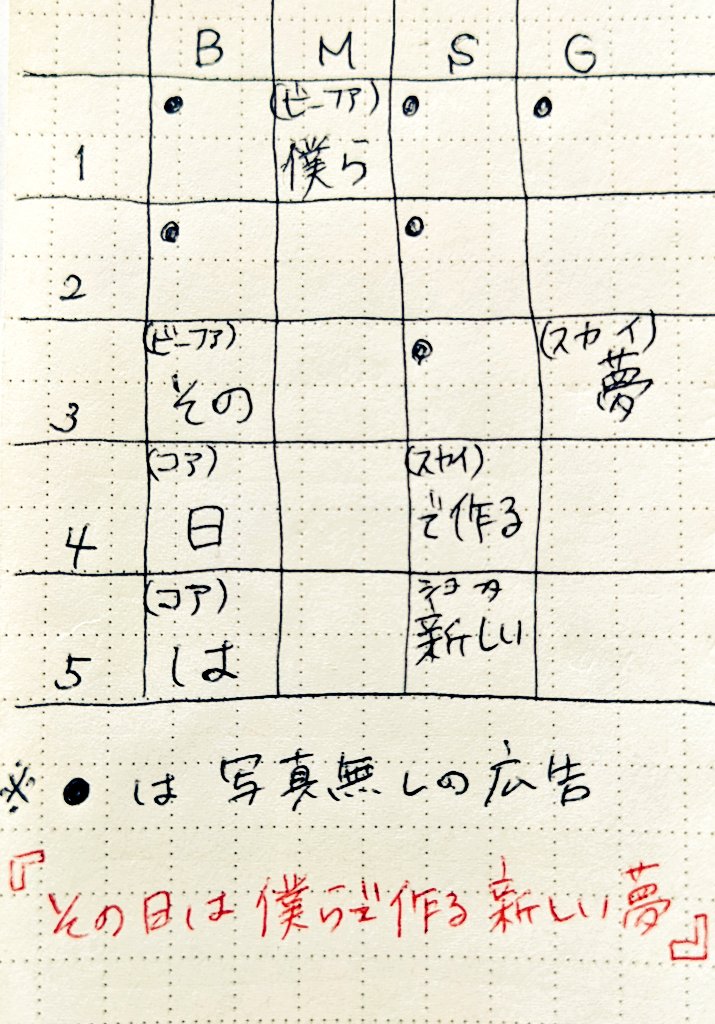 B M S G
1 ● (ビーファ) 僕ら ● ●
2 ● ●
3 (ビーファ) その ● (スカイ) 夢
4 (コア) 日 (スカイ) で作る
5 (コア) は 新しい
※ ● は 写真無しの広告
『その日は僕らで作る新しい夢』